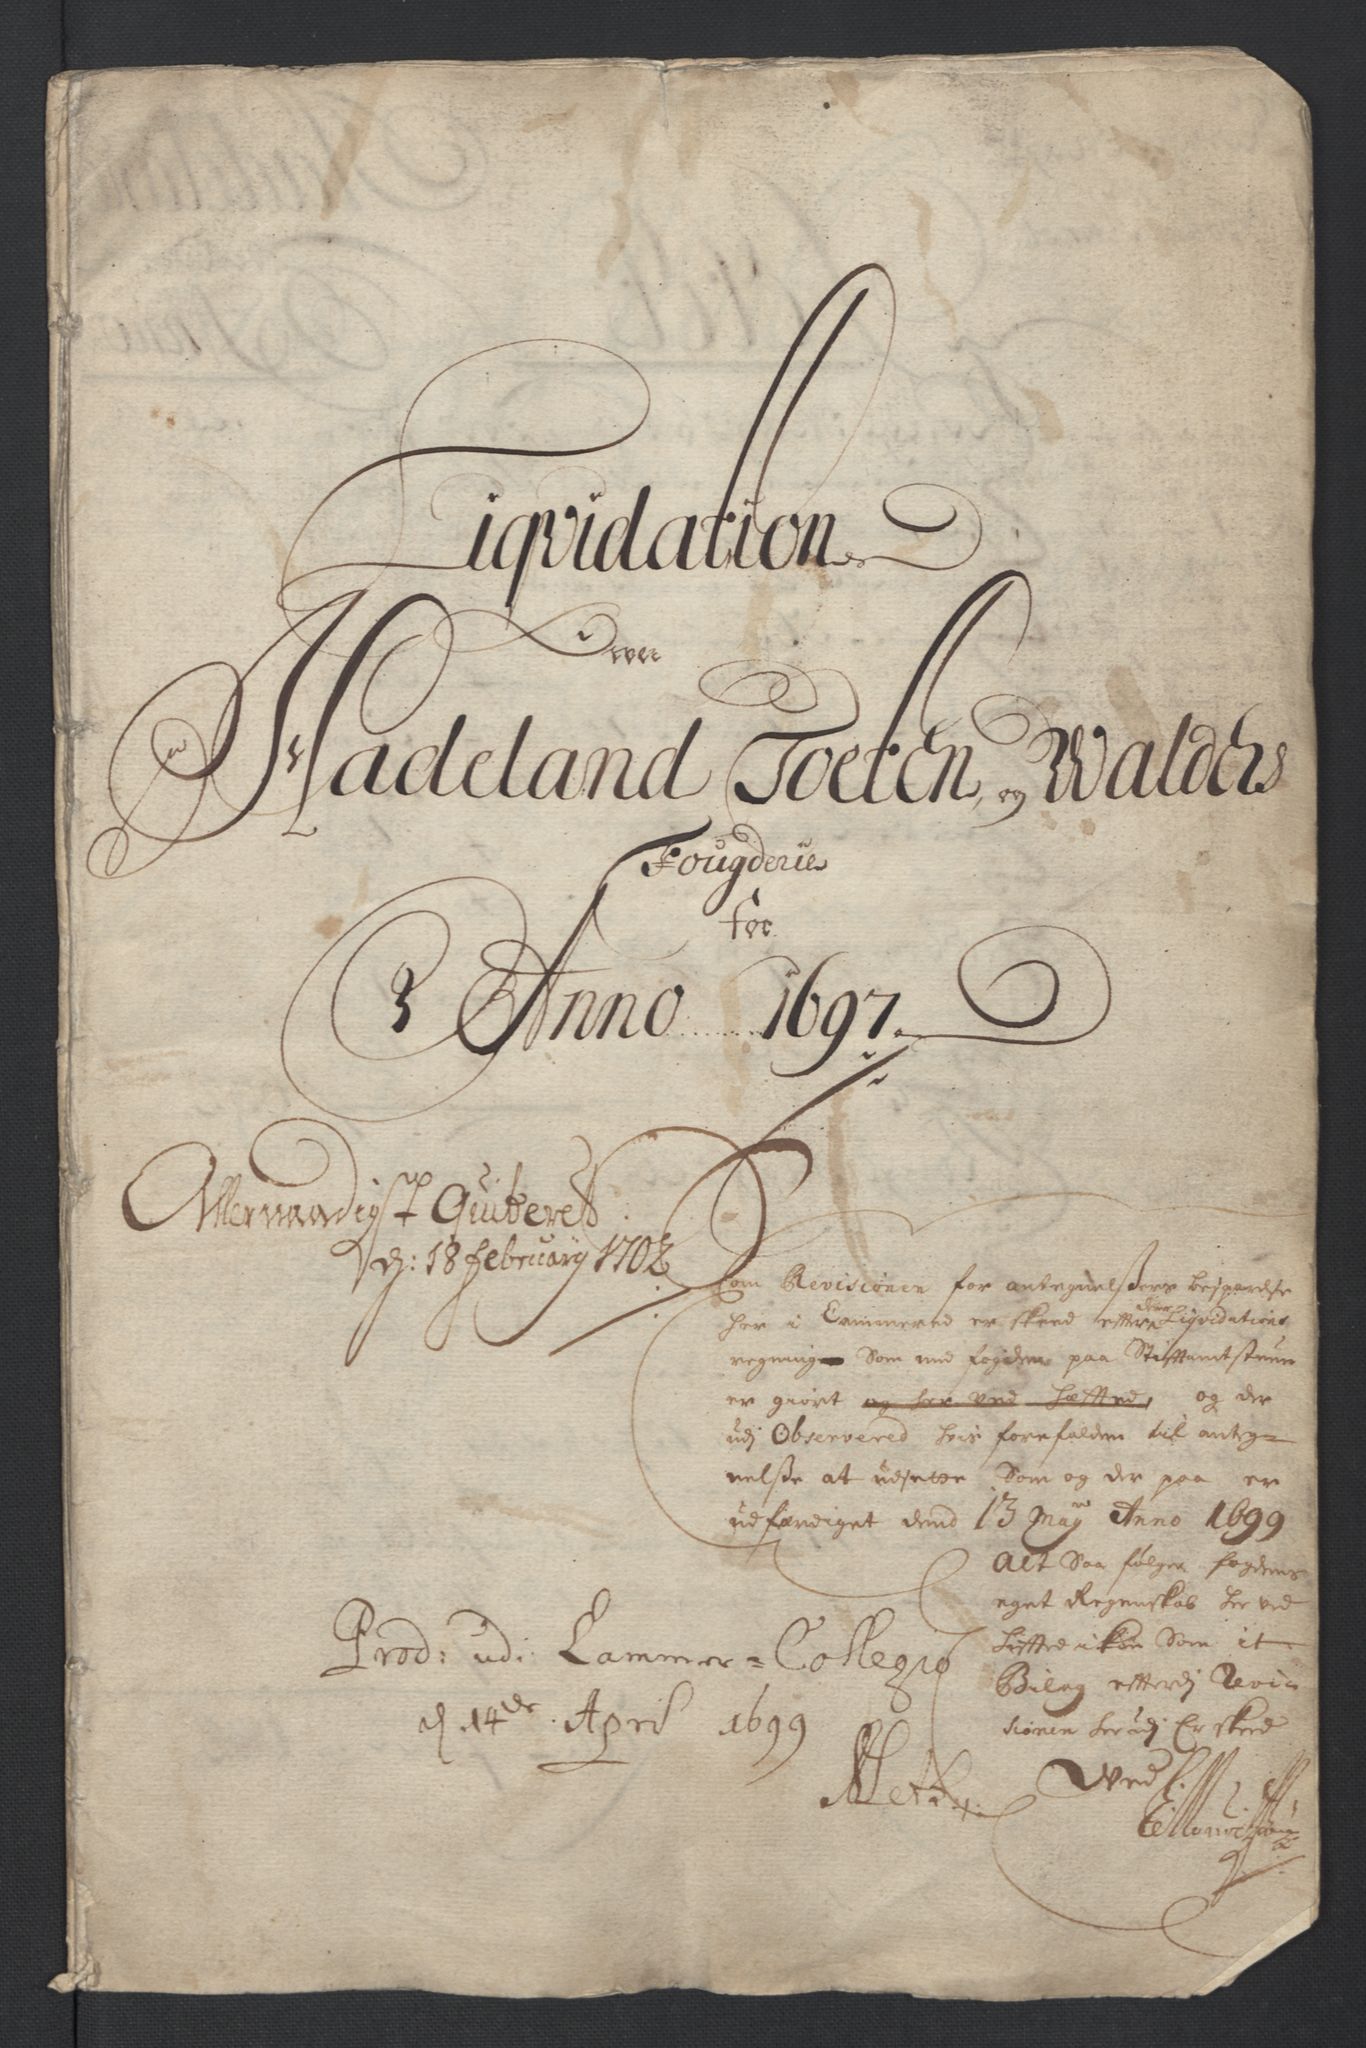 Liqvidation
over
Hadeland Toeten, og Walders
Fougderie
for
Anno 1697.
Allernaadigst Quiteret
d: 18 February 1702
Som Revisionen for antegnelsers bespardse
her i Cammered er skeed efter den Liqvidations
regning Som med fogden paa Stiftamtstuen
er giort og her ved hæfted, og der
udj Observered hvis forefalden til anteg=
nelse at udsette Som og der paa er
udfærdiget dend 13 May Anno 1699
Alt Saa følger fogdens
eget Regenskab her ved
hæfted ikke Som it
Bilag efterdj Revi
sionen herudj Er skeed
Ved
Prod: udi Cammer=Collegio
d 14de April 1699